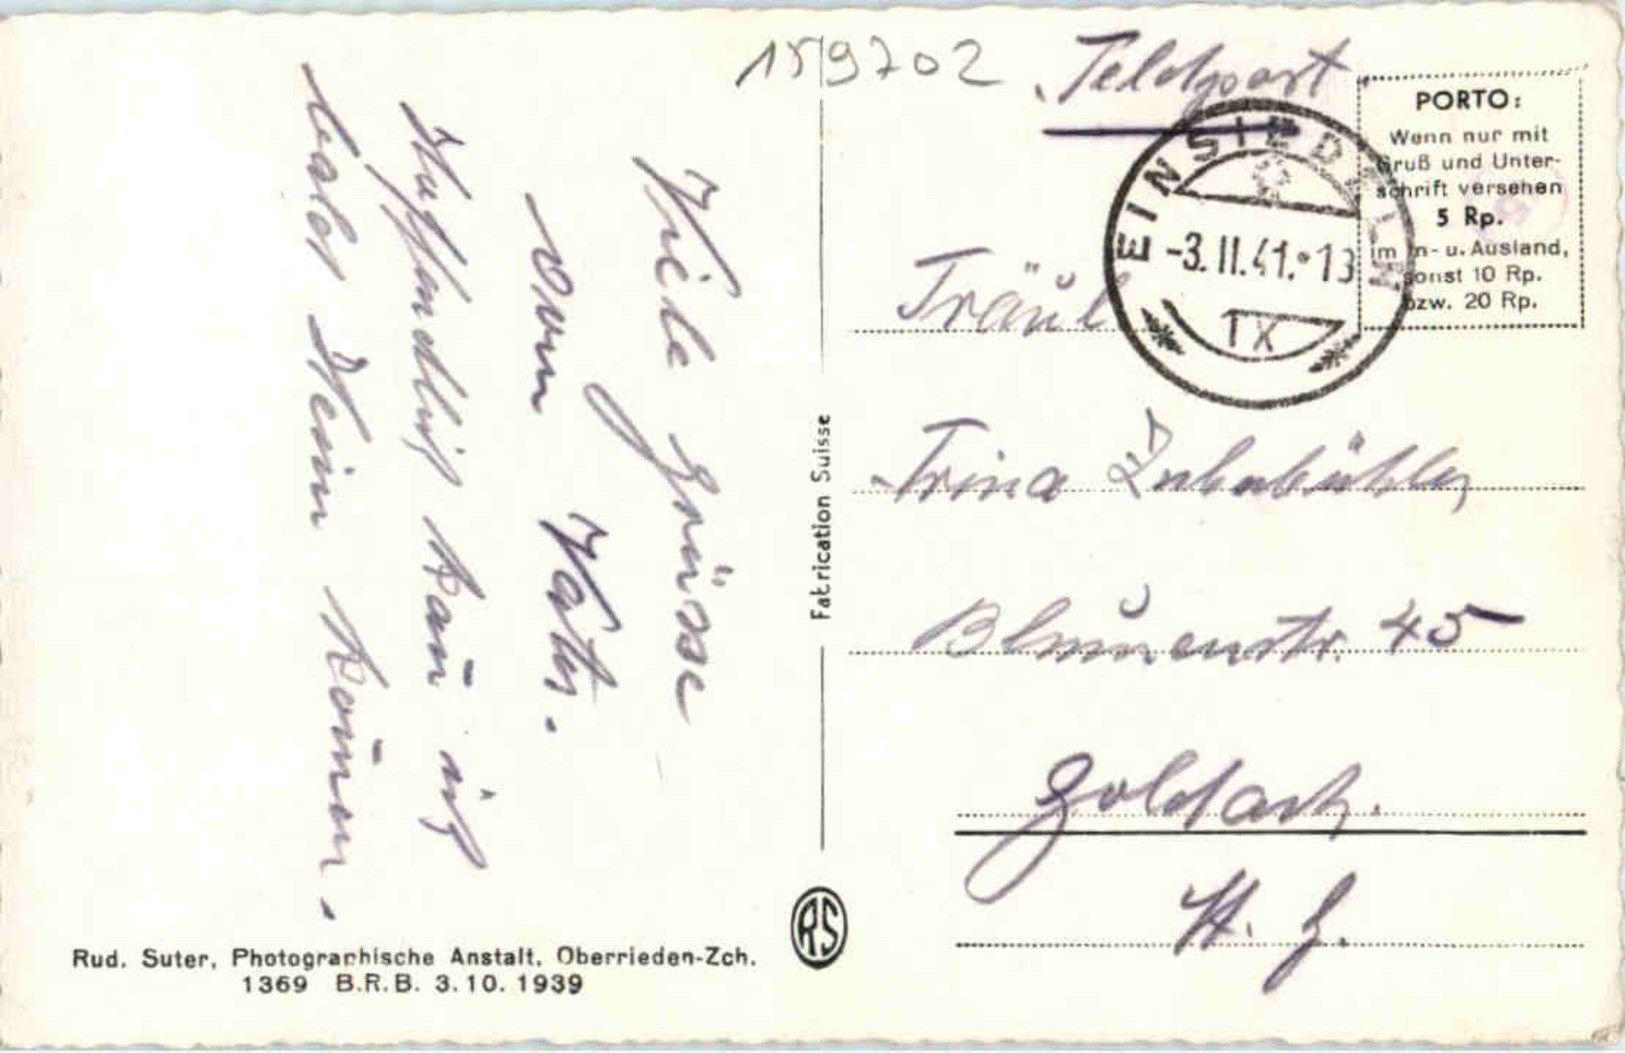 159702
Feldpost
PORTO:
Wenn nur mit
Gruß und Unter-
schrift versehen
5 Rp.
im In- u. Ausland,
sonst 10 Rp.
bzw. 20 Rp.
EINSIEDELN
-3.II.41.*13
IX
Viele Grüsse
vom Vater.
Hoffendlich kann ich
bald Heim kommen.
Fräul
Trina
Blumenstr. 45
Goldach.
St. G.
Fabrication Suisse
RS
Rud. Suter, Photographische Anstalt, Oberrieden-Zch.
1369 B.R.B. 3.10.1939